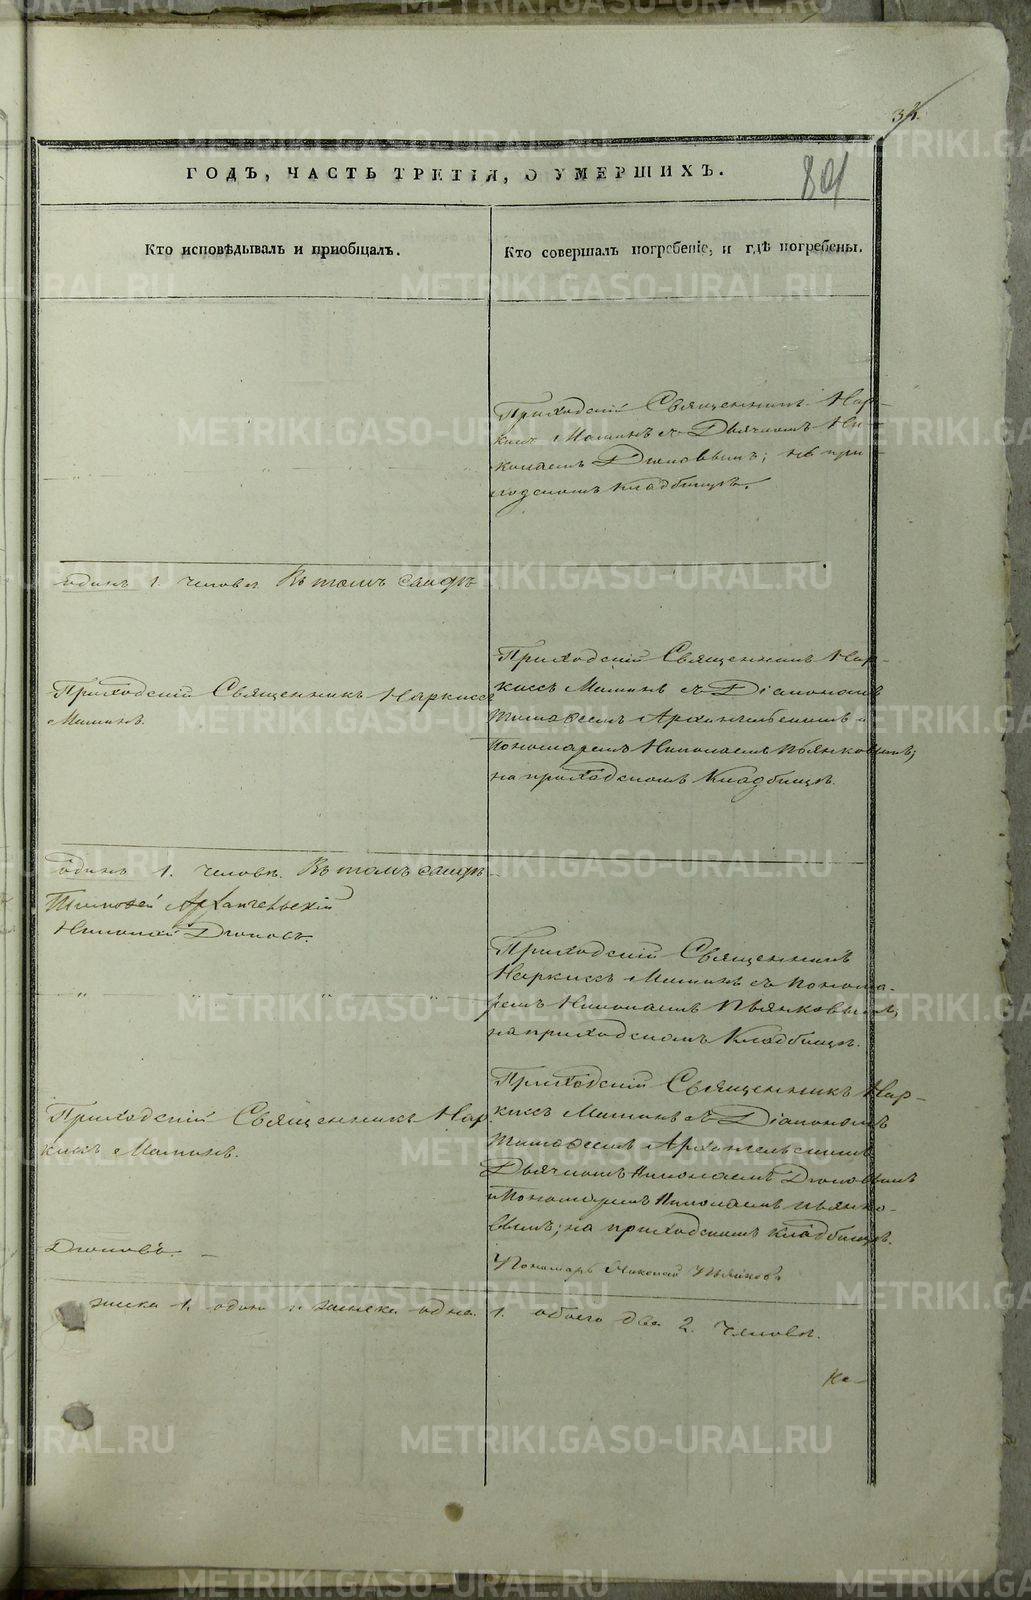 ГОДЪ, ЧАСТЬ ТРЕТІЯ, О УМЕРШИХЪ.
Кто исповѣдывалъ и пріобщалъ.
Кто совершалъ погребеніе, и гдѣ погребены.
Приходскій Священникъ Нар-
кисъ Маминъ съ Дьячкомъ Ни-
колаемъ ; на при-
ходскомъ кладбищѣ.
одинъ 1. человѣ. Въ томъ
Приходскій Священникъ Наркиссъ
Маминъ.
Приходскій Священникъ Нар-
киссъ Маминъ съ Діакономъ
Тимофеемъ Архангельскимъ и
Пономаремъ Николаемъ Пьянковымъ;
на приходскомъ Кладбищѣ.
одинъ 1. человѣ. Въ томъ
Тимофей Архангельскій
Николай
Приходскій Священникъ
Наркиссъ Маминъ съ Понома-
ремъ Николаемъ Пьянковымъ,
на приходскомъ Кладбищѣ.
Приходскій Священникъ Нар-
кисъ Маминъ.
Приходскій Священникъ Нар-
киссъ Маминъ съ Діакономъ
Тимофеемъ Архангельскимъ
Дьячкомъ Николаемъ
и Пономаремъ Николаемъ Пьянко-
вымъ; на приходскомъ кладбищѣ.
Пономарь Николай Пьянковъ
1. одинъ и одна 1. обоего два 2. человѣ.
METRIKI.GASO-URAL.RU